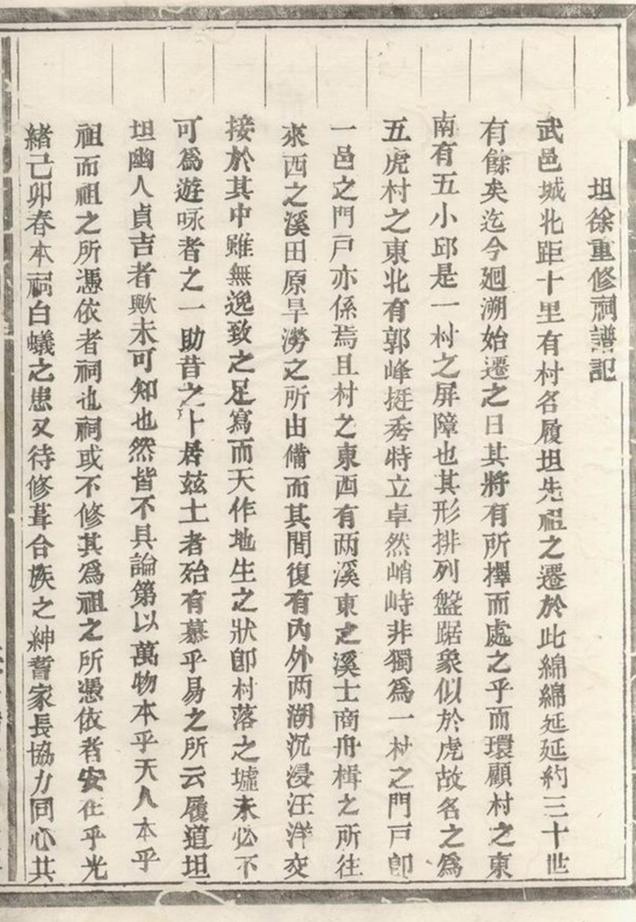 坦徐重修祠譜記
武邑城北距十里有村名履坦先祖之遷於此綿綿延延約三十世
有餘矣迄今廻溯始遷之日其將有所擇而處之乎而環顧村之東
南有五小邱是一村之屏障也其形排列盤踞象似於虎故名之爲
五虎村之東北有郭峰挺秀特立卓然峭峙非獨爲一村之門戸卽
一邑之門戸亦係焉且村之東西有两溪東之溪士商舟楫之所往
來西之溪田原旱澇之所由備而其間復有內外两湖沉浸汪洋交
接於其中雖無逸致之足寫而天作地生之狀卽村落之墟未必不
可爲遊咏者之一助昔之卜居茲土者殆有慕乎易之所云履道坦
坦幽人貞吉者歟未可知也然皆不具論第以萬物本乎天人本乎
祖而祖之所憑依者祠也祠或不修其爲祖之所憑依者安在乎光
緒己卯春本祠白蟻之患又待修葺合族之紳耆家長協力同心共